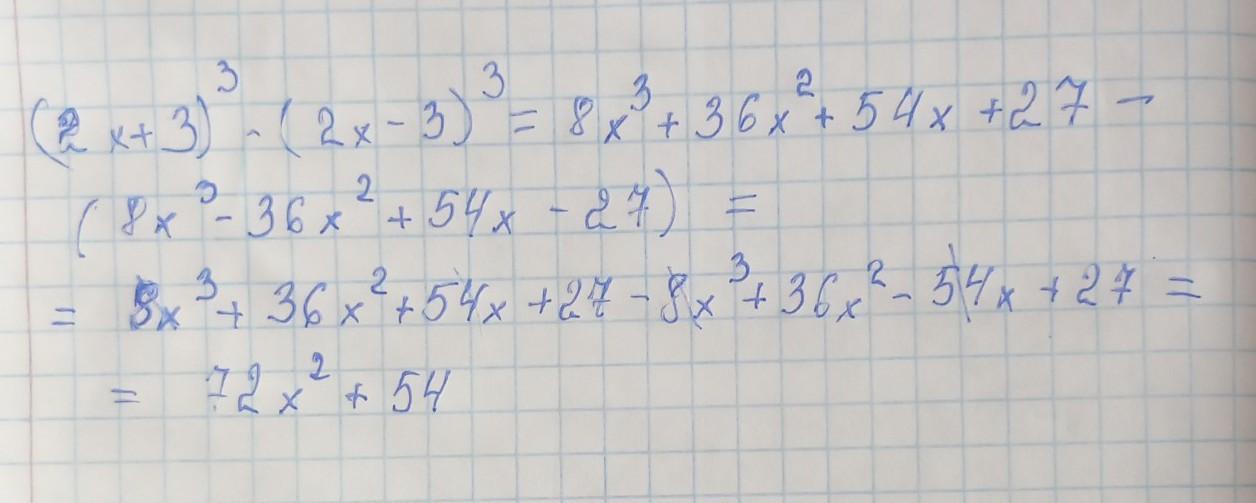 (2x+3)³ - (2x-3)³ = 8x³+36x²+54x+27 -
(8x³-36x²+54x-27) =
= 8x³+36x²+54x+27-8x³+36x²-54x+27 =
= 72x²+54